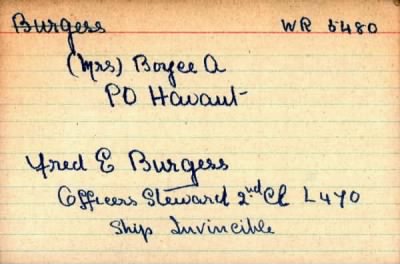 Burgess WR 5480
(Mrs) Boyce A
PO Havant
Fred E Burgess
Officers Steward 2nd Cl L470
Ship Invincible